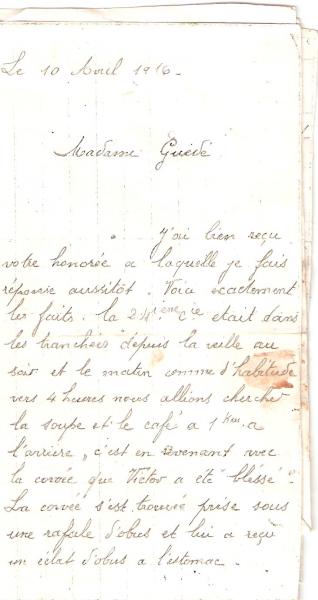 Le 10 Avril 1916.
Madame Guédé
J'ai bien reçu
votre honorée a laquelle je fais
réponse aussitôt. Voici exactement
les faits. la 24ième Cie etait dans
les tranchées depuis la veille au
soir et le matin comme d'habitude
vers 4 heures nous allions chercher
la soupe et le café a 1 Km a
l'arrière, c'est en revenant avec
la corvée que Victor a été blessé.
La corvée s'est trouvée prise sous
une rafale d'obus et lui a reçu
un eclat d'obus a l'estomac.